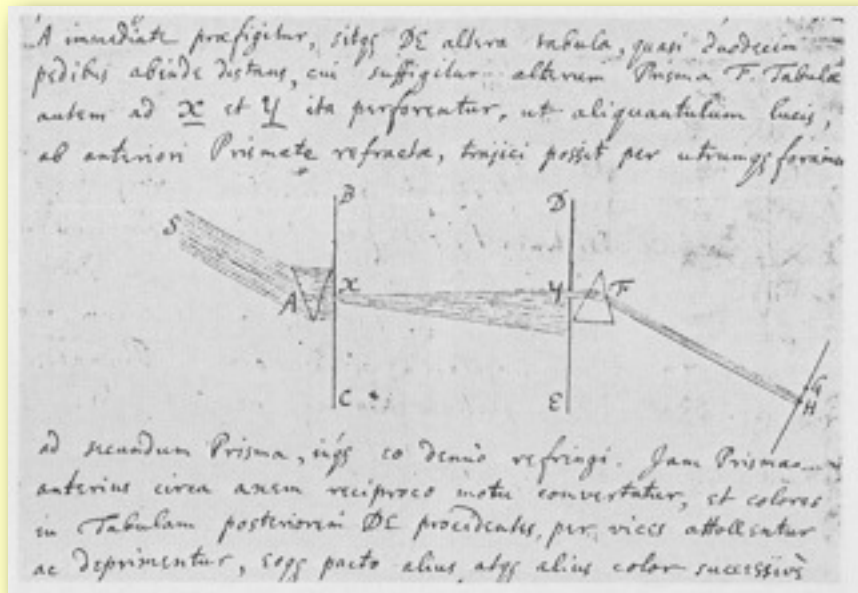 A immediatè præfigitur, sitqs DE altera tabula, quasi duodecim
pedibus abinde distans, cui suffigitur alterum Prisma F. Tabulæ
autem ad X et Y ita perforentur, ut aliquantulum lucis,
ab anteriori Prismate refractæ, trajici possit per utrumqs foramen
B
D
S
A
X
Y
F
C
E
G
H
ad secundum Prisma, inqs eo denuò refringi. Jam Prisma
anterius circa axem reciproco motu convertatur, et colores
in Tabulam posteriorem DE procidentes, per vices attollentur
ac deprimentur, eoqs pacto alius atqs alius color successivè